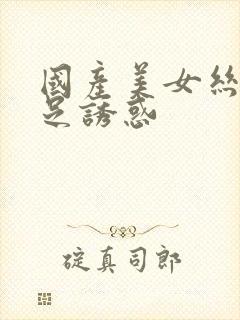 國產美女絲
足誘惑
碇真司郎